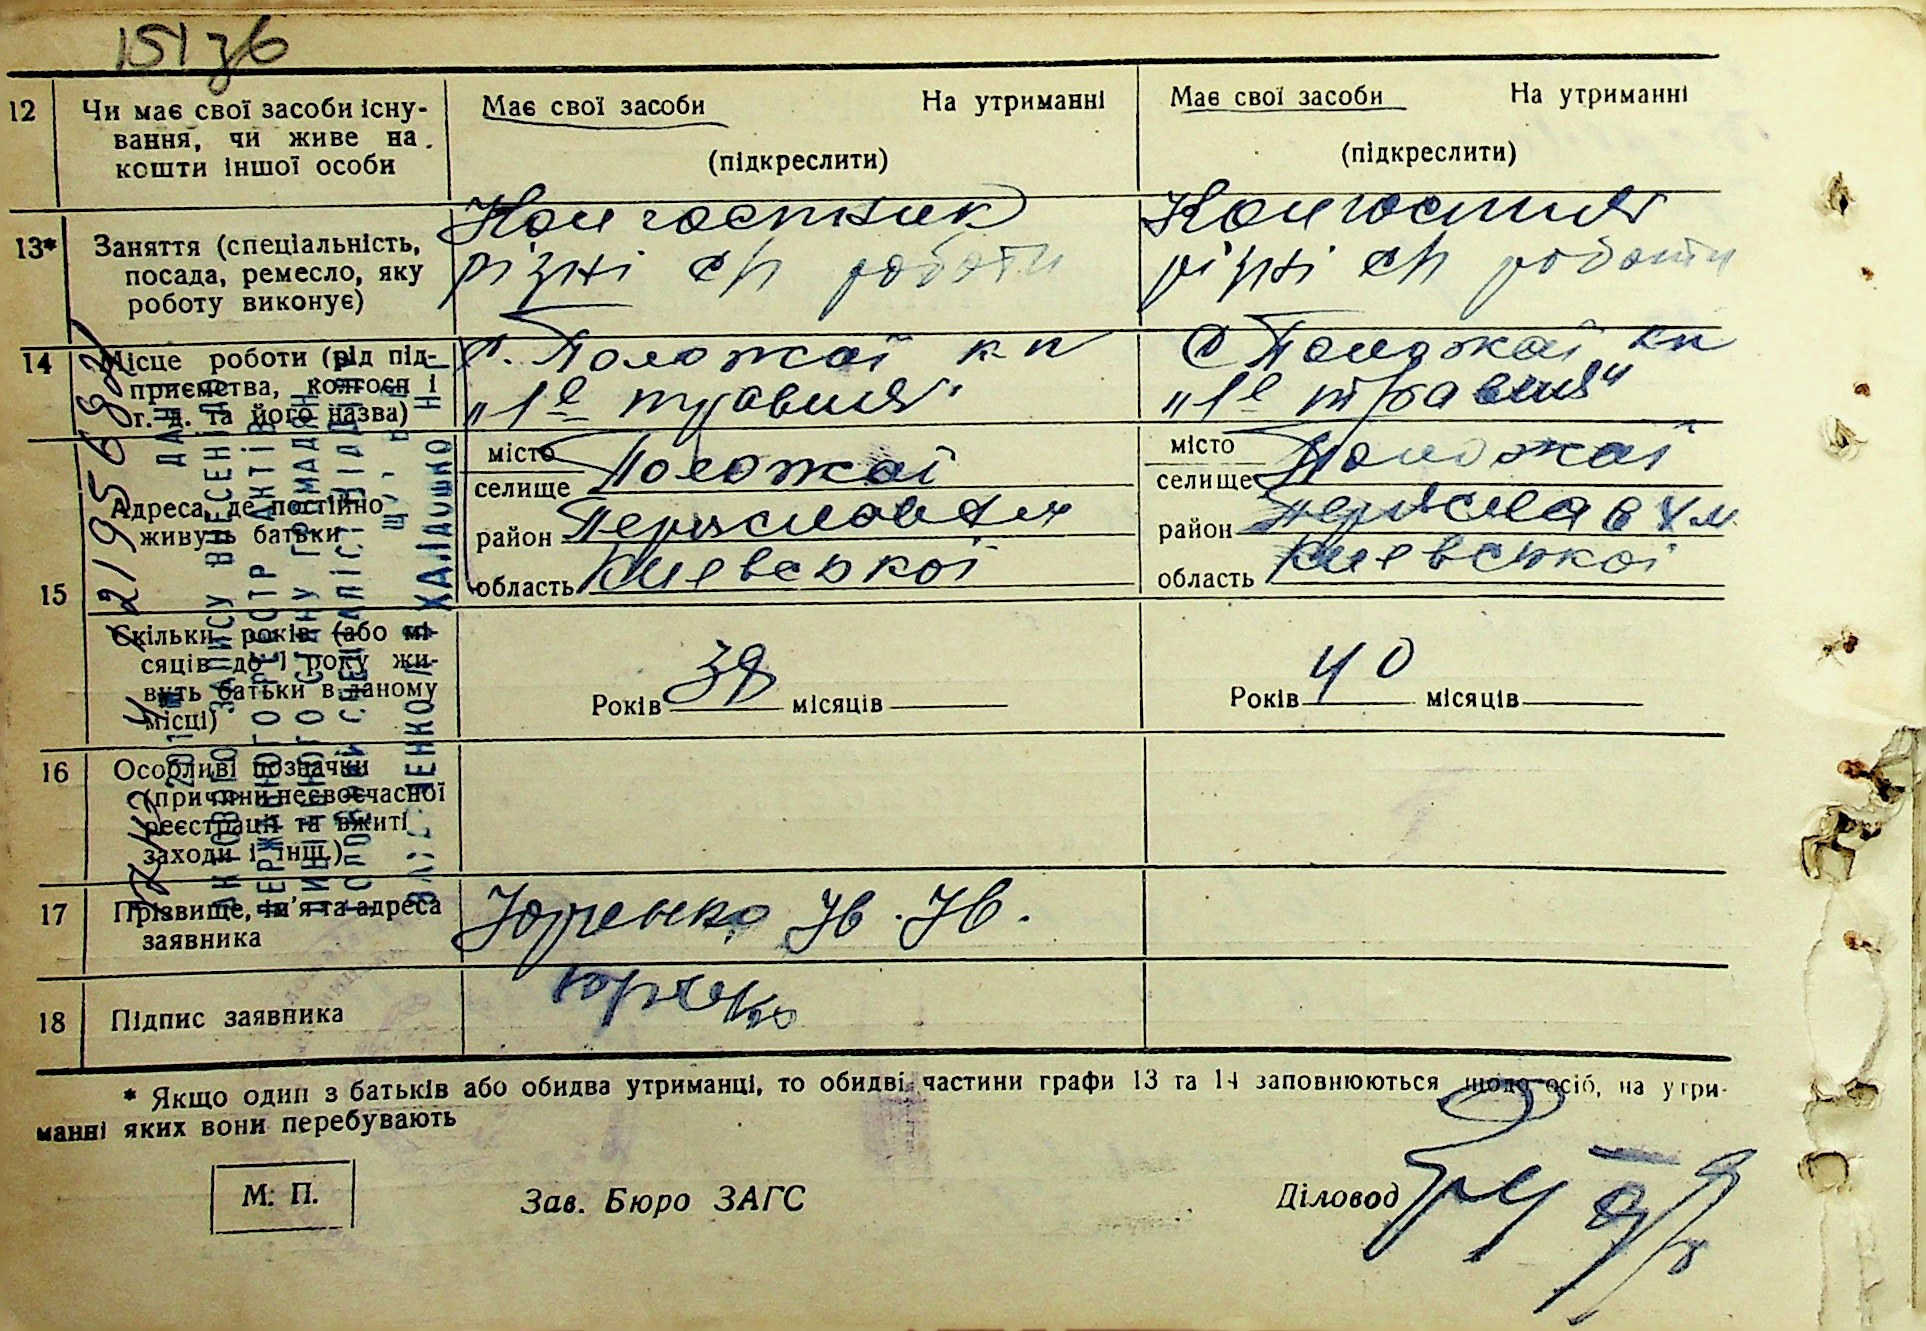 151 зв
12 Чи має свої засоби існу- Має свої засоби На утриманні Має свої засоби На утриманні
вання, чи живе на
кошти іншої особи (підкреслити) (підкреслити)
13* Заняття (спеціальність, Колгоспник Колгоспниця
посада, ремесло, яку різні с/г роботи різні с/г роботи
роботу виконує)
14 Місце роботи (рід під- с. Положаї к-п с Положаї к-п
приємства, колгосп і "1е травня" "1е травня"
т. д. та його назва)
15 Адреса, де постійно
живуть батьки
місто Положаї місто Положаї
селище селище
район Переяслав район Переяслав
область Київської область Київської
Скільки років (або мі-
сяців до 1 року жи-
вуть батьки в даному
місці) Років 39 місяців Років 40 місяців
16 Особливі позначки
(причини несвоєчасної
реєстрації та вжиті
заходи і інш.)
17 Прізвище, ім'я та адреса Юрченко Ів. Ів.
заявника
18 Підпис заявника Юрченко
* Якщо один з батьків або обидва утриманці, то обидві частини графи 13 та 14 заповнюються щодо осіб, на утри-
манні яких вони перебувають
М. П. Зав. Бюро ЗАГС Діловод
201
ДАНІ
ЗАПИСУ ВНЕСЕНІ
ДЕРЖАВНОГО РЕЄСТР АКТІВ
ЦИВІЛЬНОГО СТАНУ ГРОМАДЯН
ХАЛІДОШКО